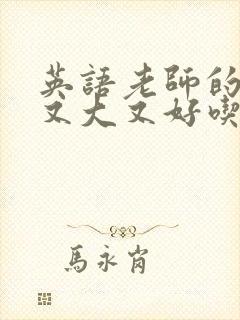 英語老師的
又大又好喫
馬永肖